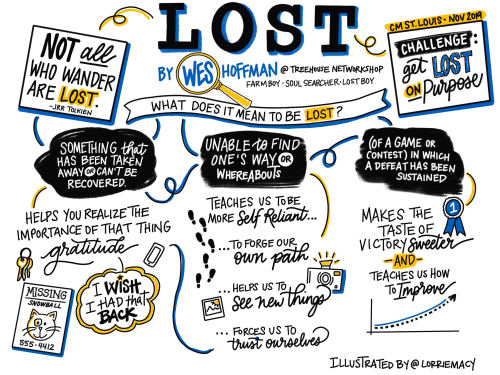 LOST
BY WES HOFFMAN @ TREEHOUSE NETWORKSHOP
FARM BOY · SOUL SEARCHER · LOST BOY
NOT all
WHO WANDER
ARE LOST.
-JRR TOLKIEN
CM ST. LOUIS · NOV 2019
CHALLENGE:
get LOST
ON Purpose
WHAT DOES IT MEAN TO BE LOST?
SOMETHING that
HAS BEEN TAKEN
AWAY OR CAN'T BE
RECOVERED.
HELPS YOU REALIZE THE
IMPORTANCE OF THAT THING
gratitude
I WISH
I HAD that
BACK
MISSING
SNOWBALL
555-4412
UNABLE to FIND
ONE'S WAY OR
WHEREABOUTS
TEACHES US TO BE
MORE Self Reliant...
...TO FORGE OUR
own path
...HELPS US TO
see new things
...FORCES US TO
trust ourselves
(OF A GAME OR
CONTEST) IN WHICH
A DEFEAT HAS BEEN
SUSTAINED
MAKES THE
TASTE OF
VICTORY sweeter
-AND-
TEACHES US HOW
to Improve
1
ILLUSTRATED BY @LORRIEMACY